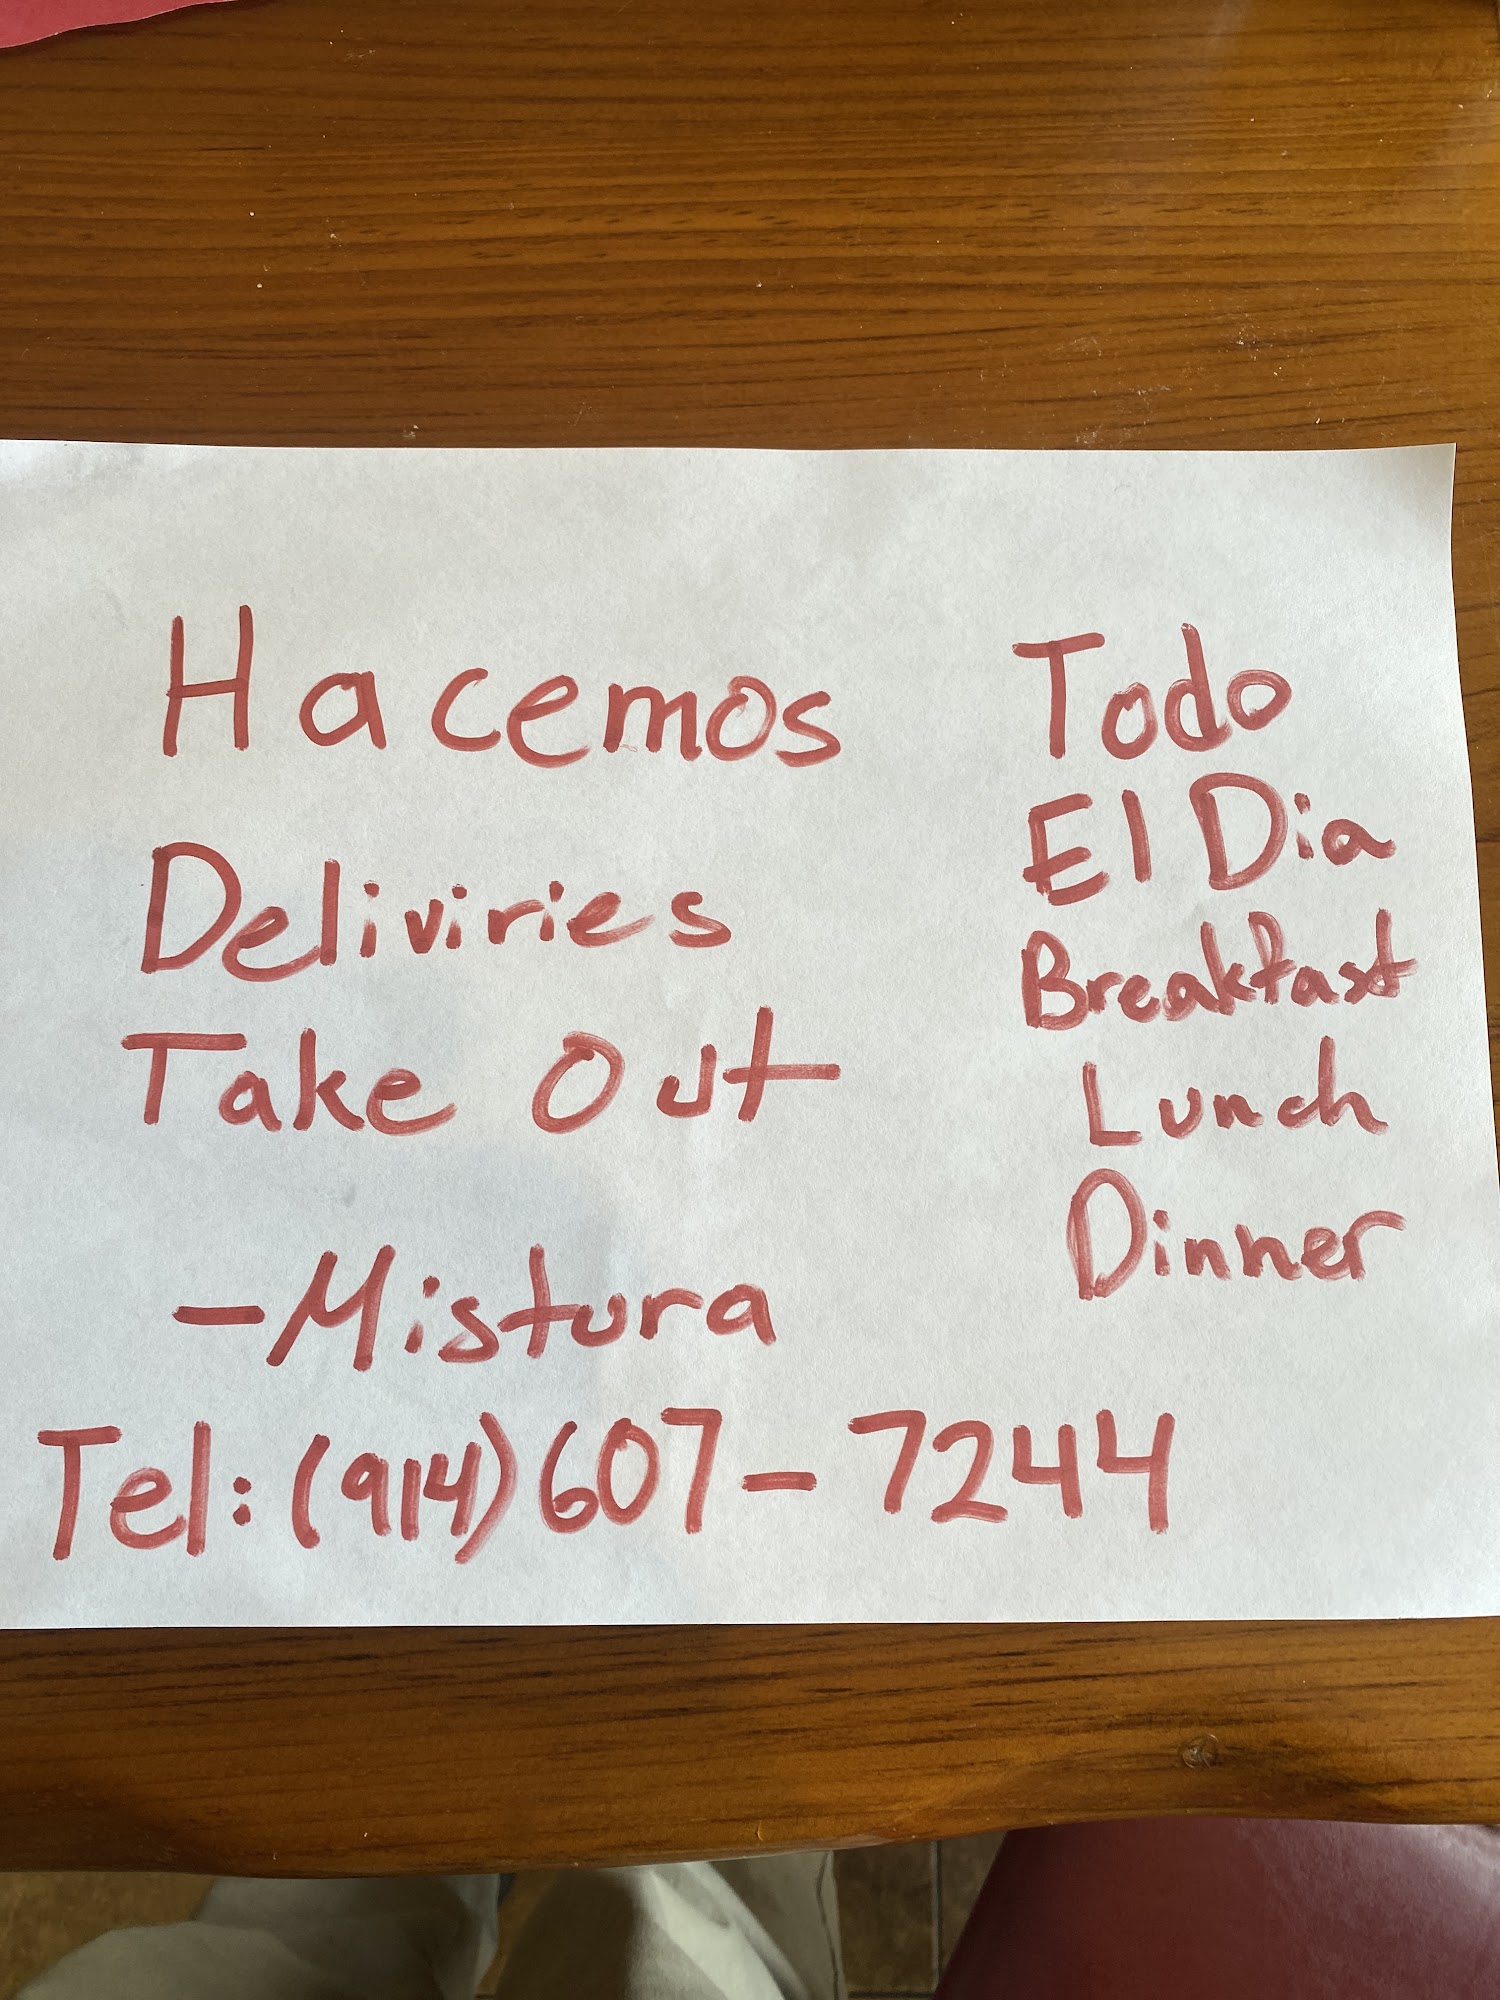 Hacemos
Deliviries
Take Out
-Mistura
Tel: (914) 607-7244
Todo
El Dia
Breakfast
Lunch
Dinner